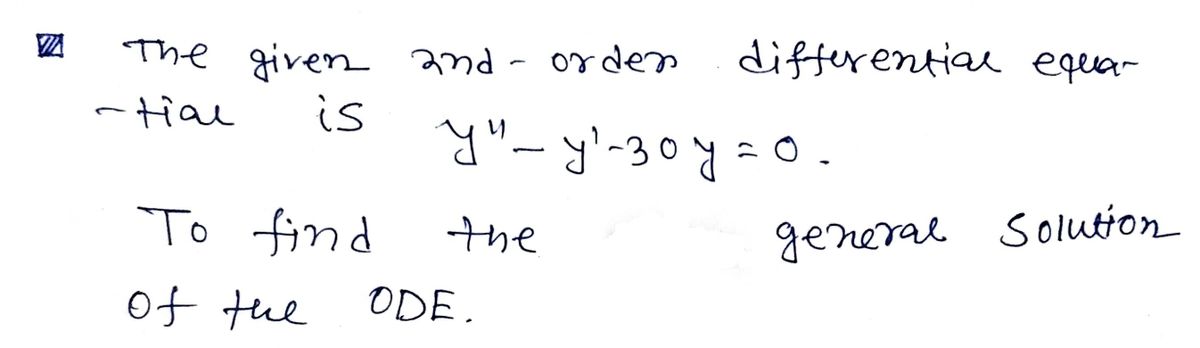 The given 2nd-order differential equa-
-tial is y"- y'-30y = 0.
To find the general solution
of the ODE.